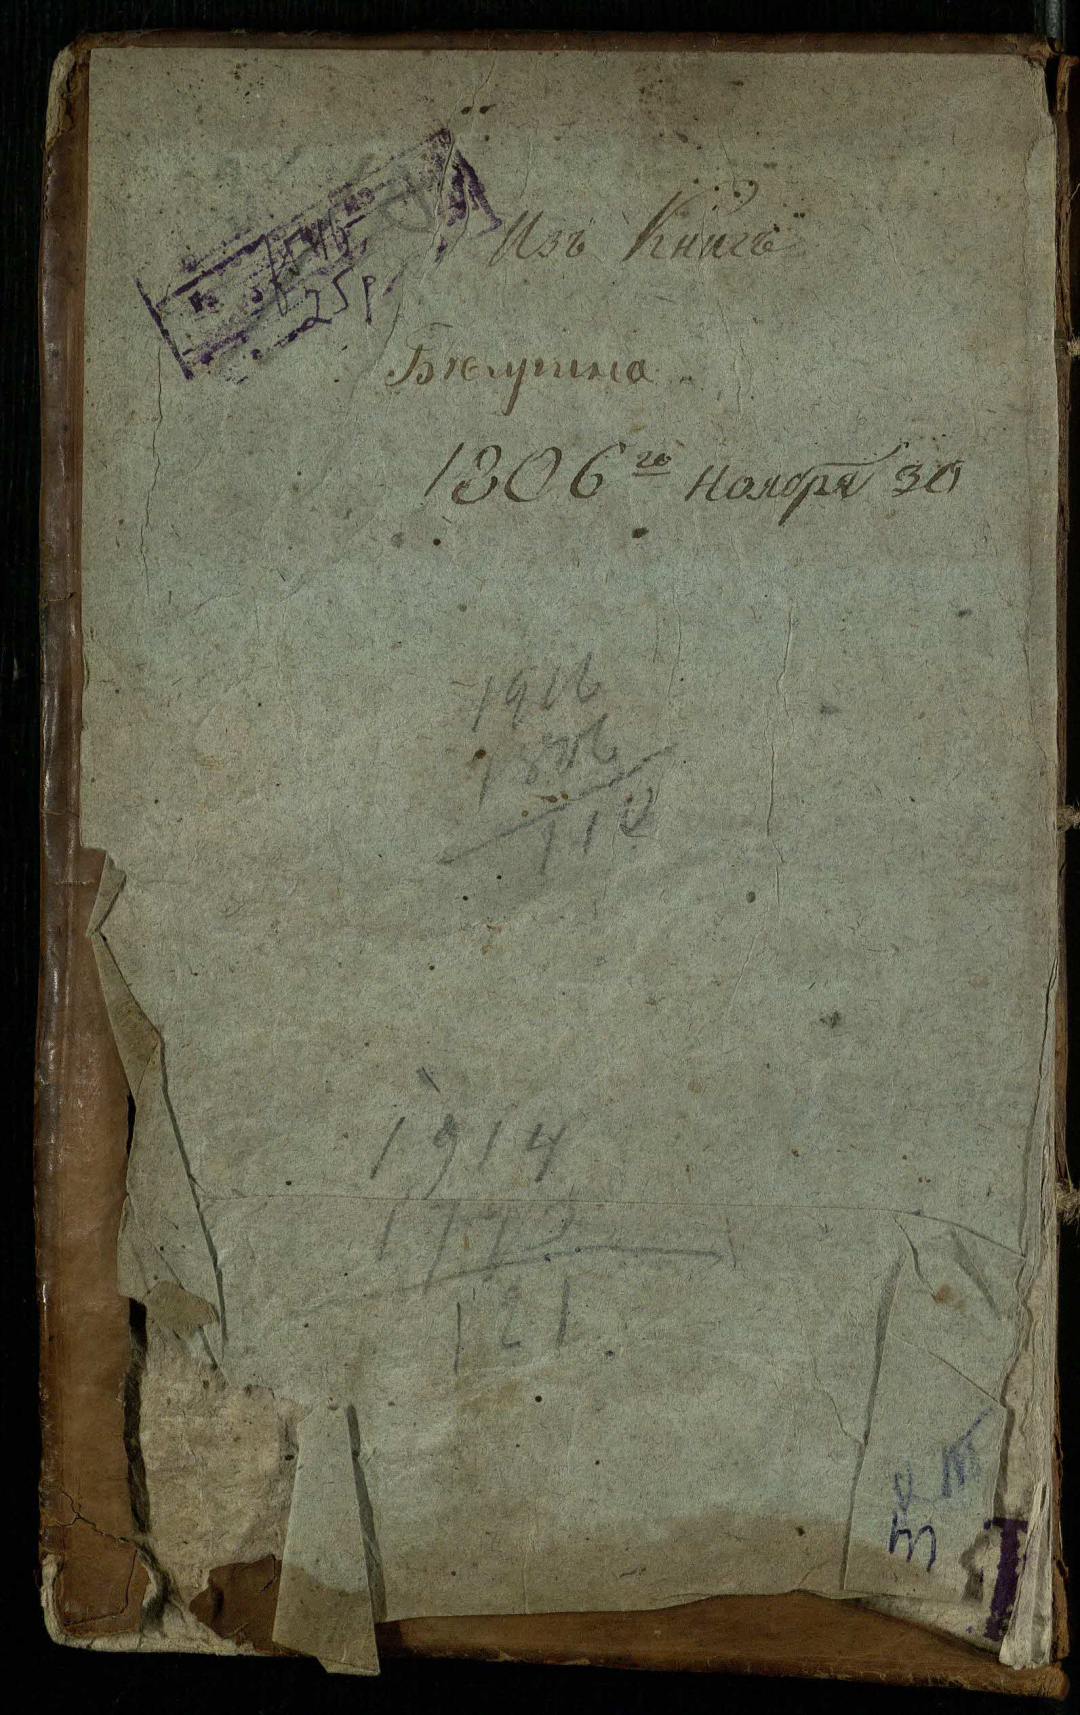 Изъ Книгъ
Бѣлушина
1806го Ноября 30
25р.
1916
1806
110
1914
1793
121